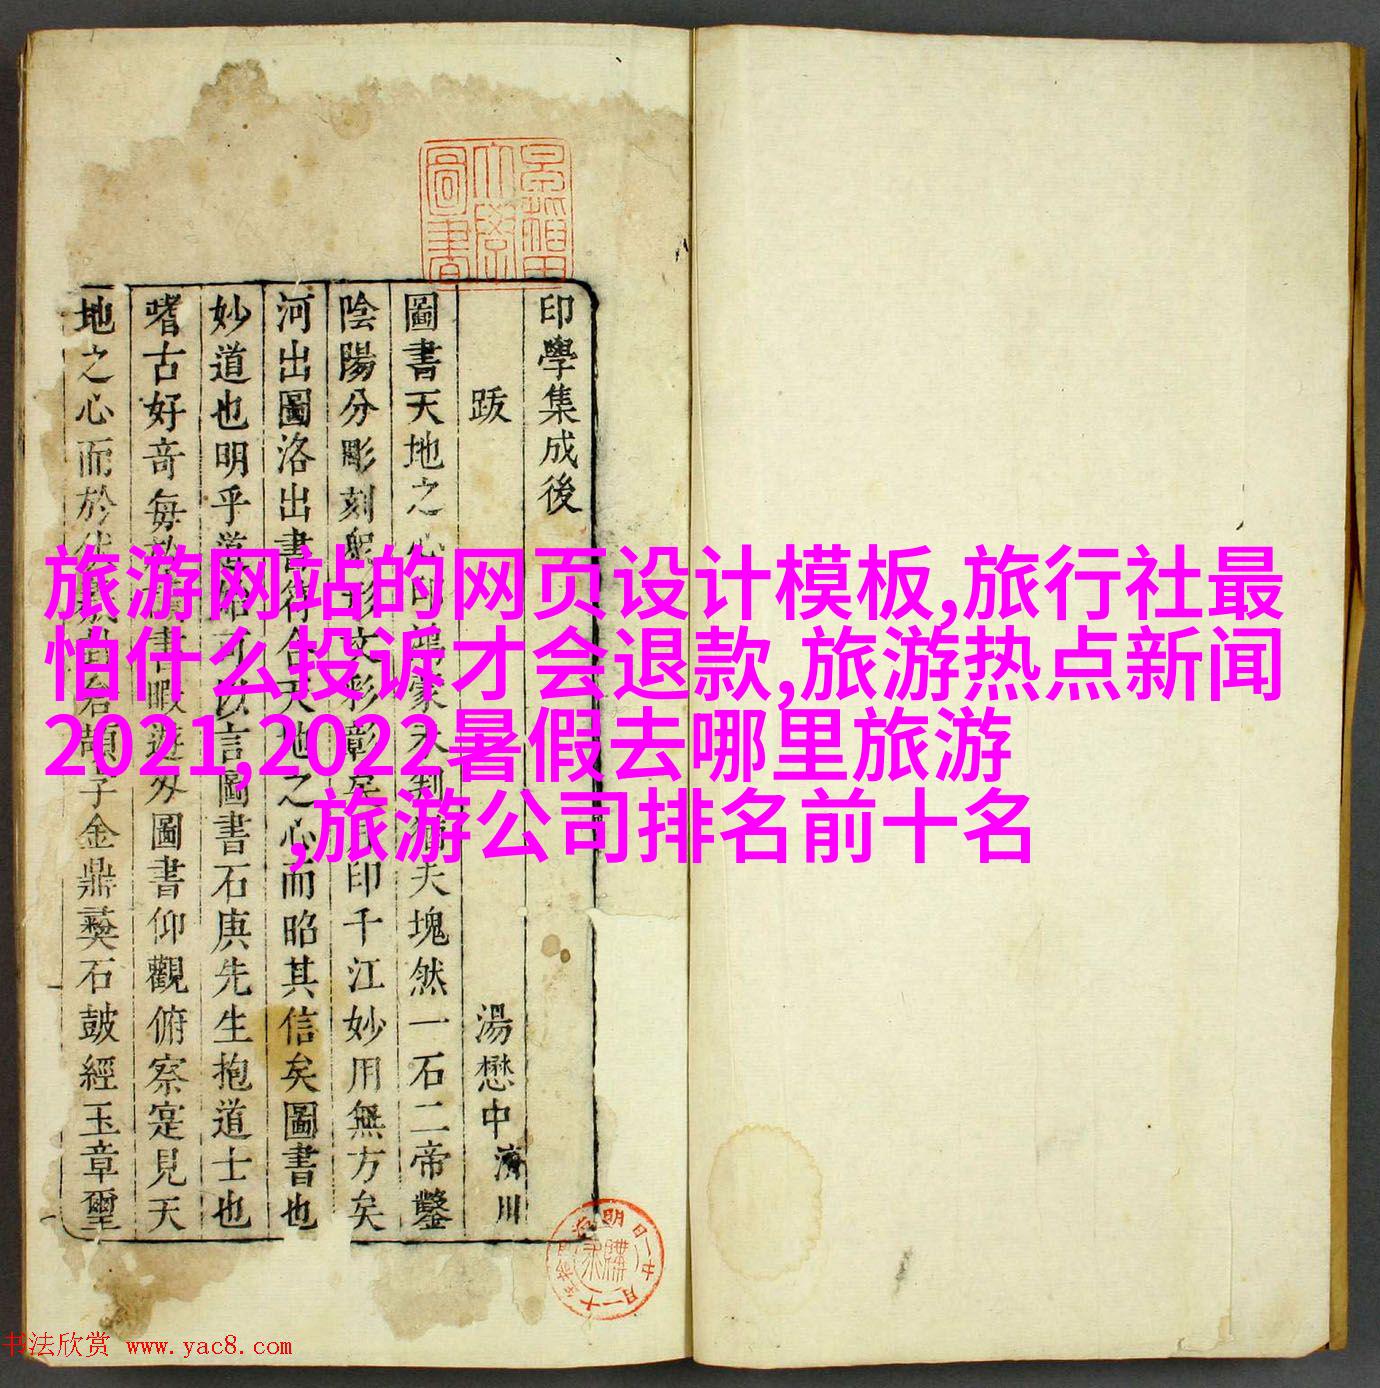 印學集成後
跋
湯懋中
濟川
圖書天地之心
夫塊然一石二帝鑿
陰陽分彫刻
印千江妙用無方矣
河出圖洛出書
天地之心而昭其信矣圖書也
妙道也明乎
以言圖書石庚先生抱道士也
嗜古好奇每
書暇遊外圖書仰觀俯察寔見天
地之心而於
字金鼎彝石鼓經玉章璽
旅游网站的网页设计模板,旅行社最
怕什么投诉才会退款,旅游热点新闻
2021,2022暑假去哪里旅游
,旅游公司排名前十名
书法欣赏 www.yac8.com